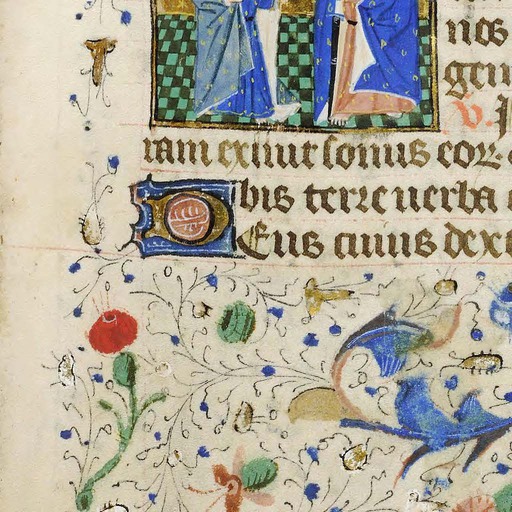 nos
gen
v. I
ram exiuit sonus eor.
bis terre uerba
Deus cuius dext